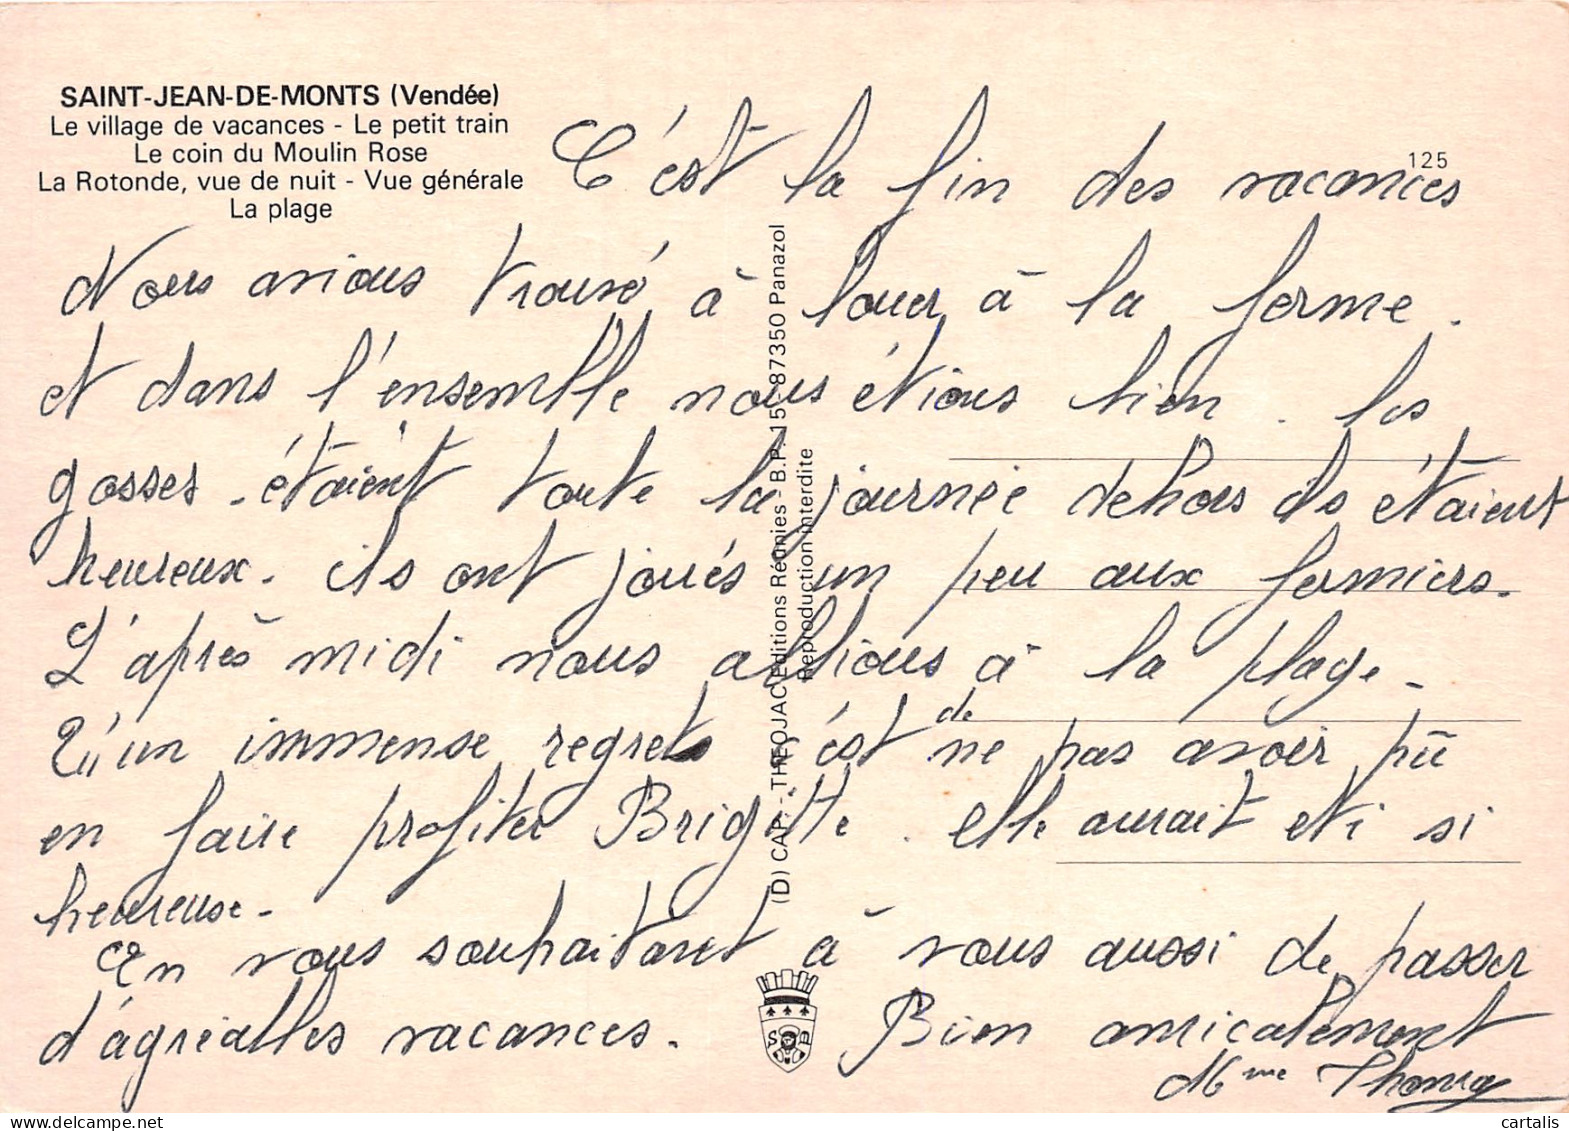 SAINT-JEAN-DE-MONTS (Vendée)
Le village de vacances - Le petit train
Le coin du Moulin Rose
La Rotonde, vue de nuit - Vue générale
La plage
125
C'est la fin des vacances
Nous avions trouvé à louer à la ferme.
et dans l'ensemble nous étions bien. les
gosses étaient toute la journée dehors ils étaient
heureux. ils ont joués un peu aux fermiers.
L'après midi nous allions à la plage.
Qu'un immense regrets c'est de ne pas avoir pû
en faire profiter Brigitte. elle aurait eti si
heureuse.
En vous souhaitant à vous aussi de passer
d'agréables vacances. Bien amicalement
Mme
(D) CAP - THEOJAC Editions Réunies B.P. 15 - 87350 Panazol
Reproduction interdite
S B
cartalis